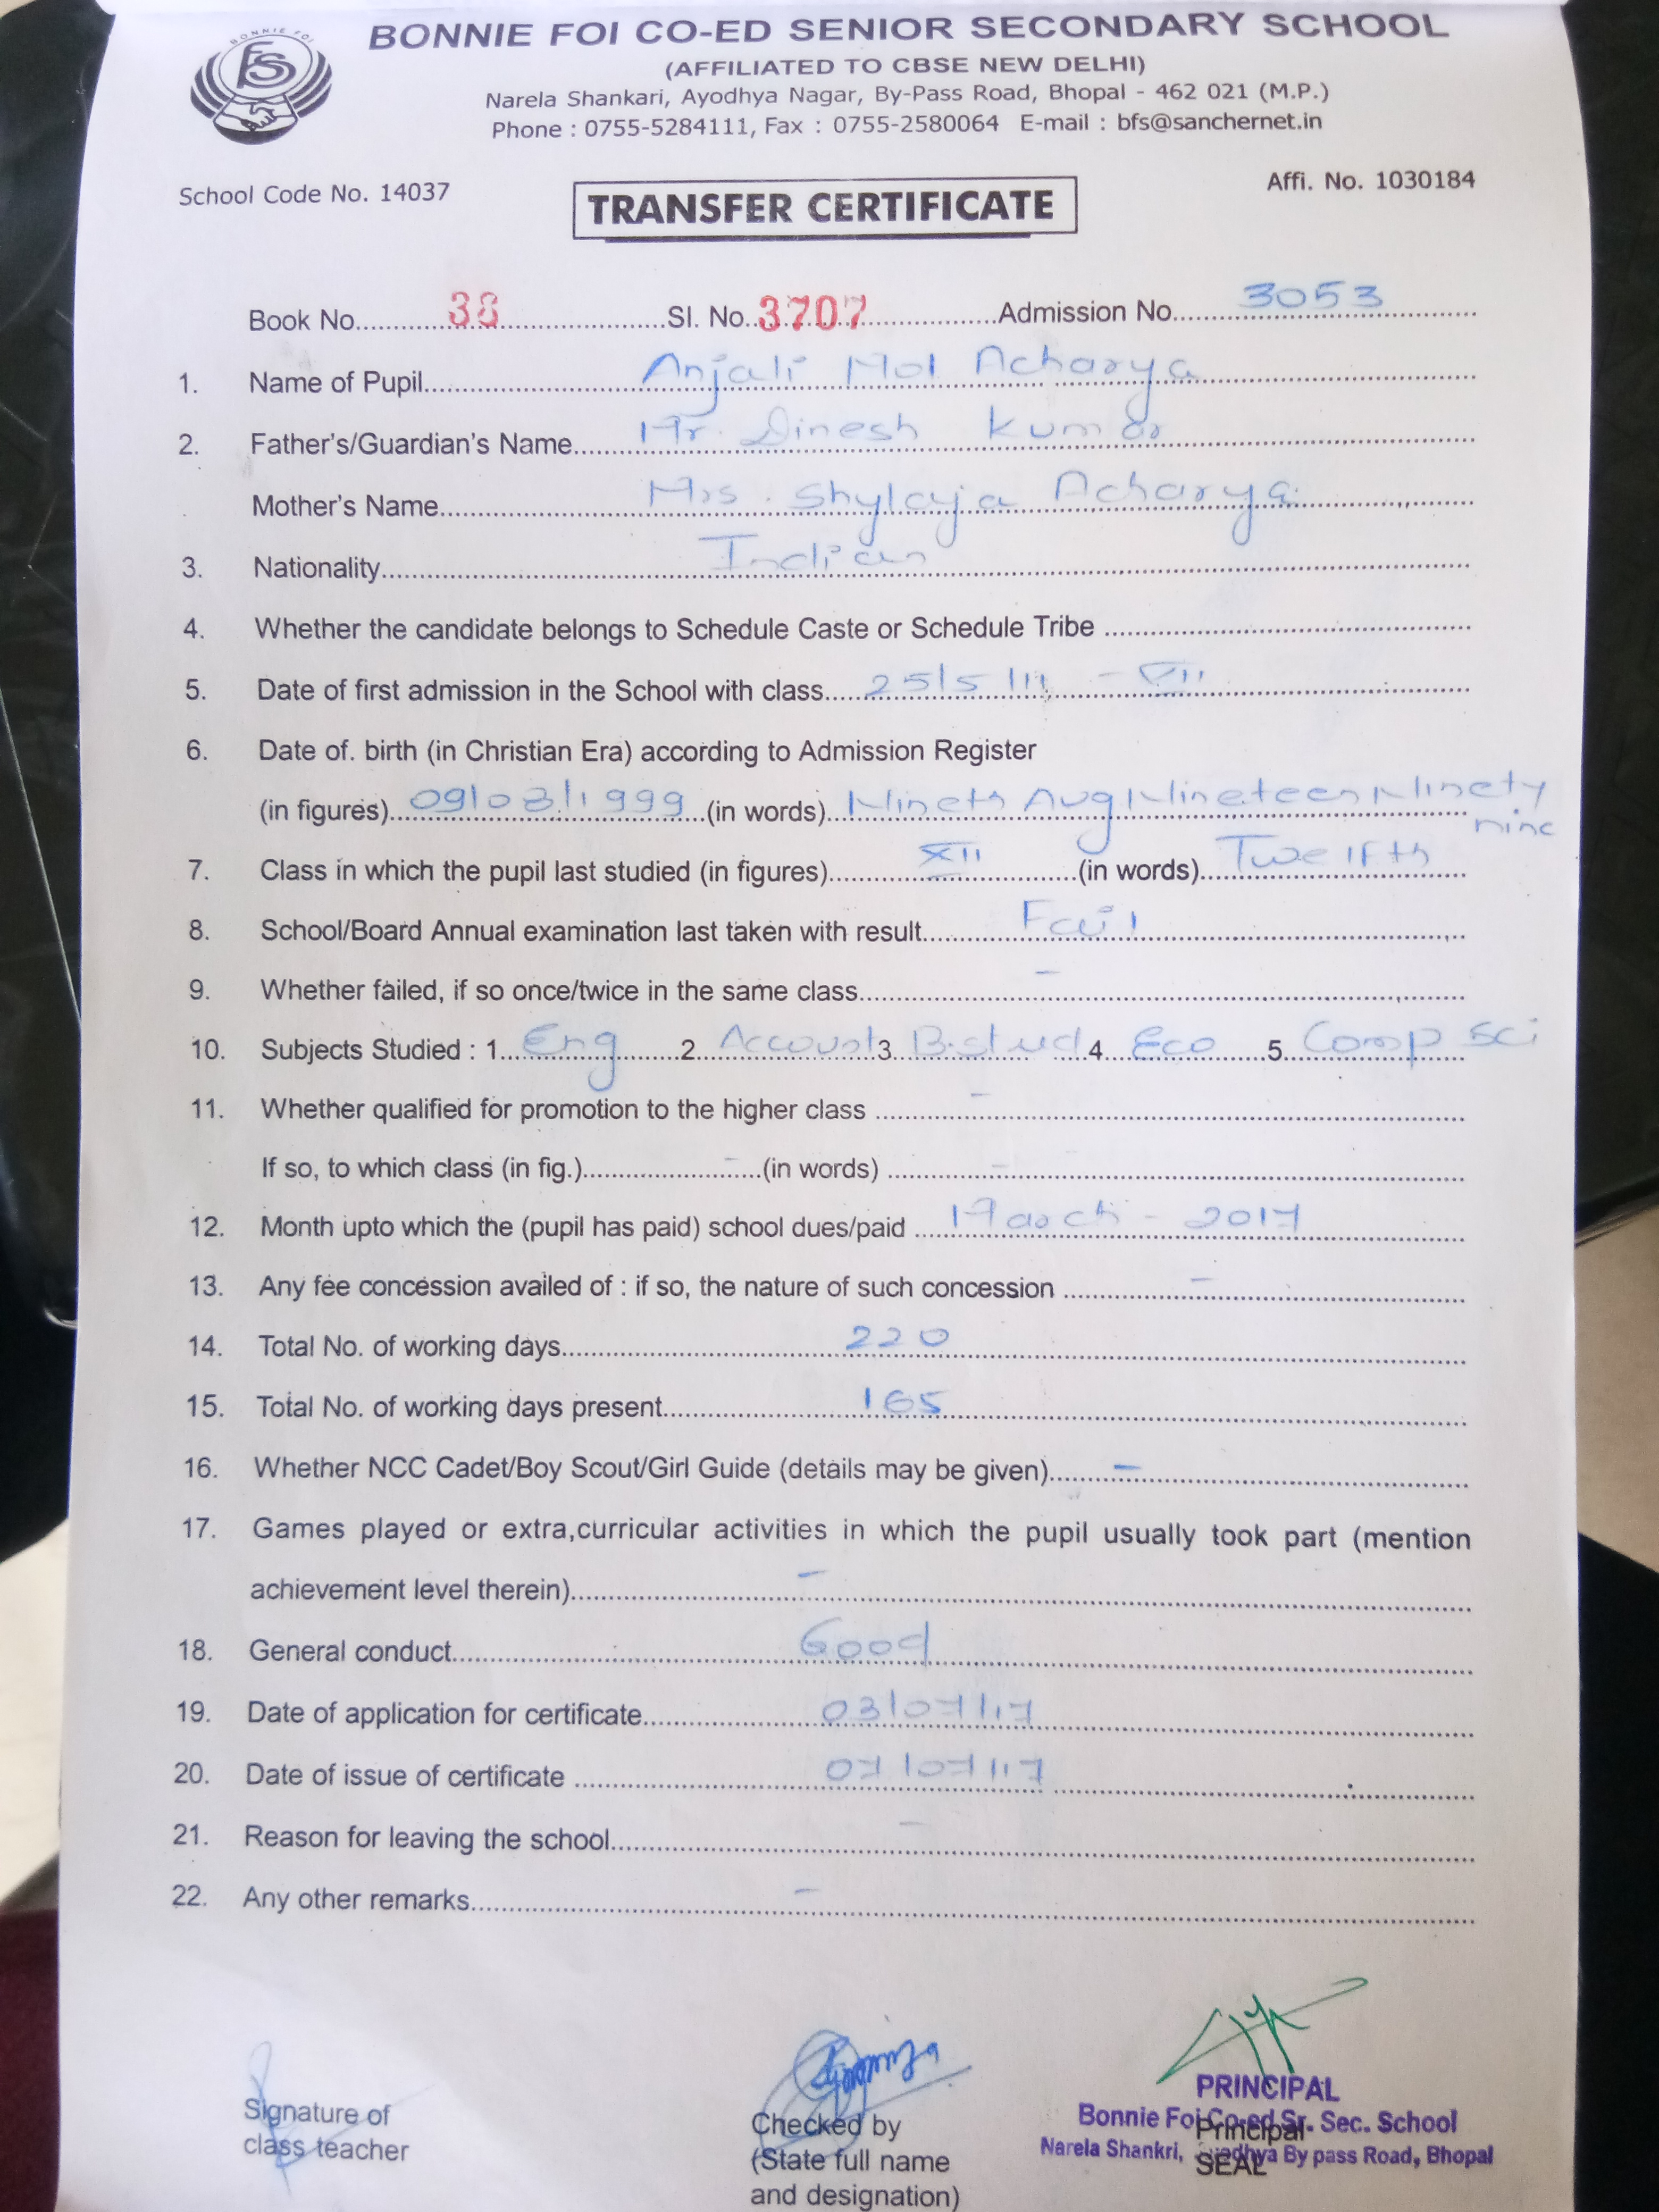 BONNIE FOI
BONNIE FOI CO-ED SENIOR SECONDARY SCHOOL
(AFFILIATED TO CBSE NEW DELHI)
Narela Shankari, Ayodhya Nagar, By-Pass Road, Bhopal - 462 021 (M.P.)
Phone : 0755-5284111, Fax : 0755-2580064 E-mail : bfs@sanchernet.in
School Code No. 14037 Affi. No. 1030184
TRANSFER CERTIFICATE
Book No. 38 Sl. No. 3707 Admission No. 3053
1. Name of Pupil Anjali Mol Acharya
2. Father's/Guardian's Name Mr. Dinesh Kumar
Mother's Name Mrs. Shylaja Acharya
3. Nationality Indian
4. Whether the candidate belongs to Schedule Caste or Schedule Tribe
5. Date of first admission in the School with class 25/5/11 - VII
6. Date of. birth (in Christian Era) according to Admission Register
(in figures) 09/08/1999 (in words) Nineth Aug Nineteen Ninety
nine
7. Class in which the pupil last studied (in figures) XII (in words) Twelfth
8. School/Board Annual examination last taken with result Fail
9. Whether failed, if so once/twice in the same class -
10. Subjects Studied : 1. Eng 2. Account 3. B.stud 4. Eco 5. Comp Sci
11. Whether qualified for promotion to the higher class -
If so, to which class (in fig.) - (in words) -
12. Month upto which the (pupil has paid) school dues/paid March - 2017
13. Any fee concession availed of : if so, the nature of such concession -
14. Total No. of working days 220
15. Total No. of working days present 165
16. Whether NCC Cadet/Boy Scout/Girl Guide (details may be given) -
17. Games played or extra,curricular activities in which the pupil usually took part (mention
achievement level therein) -
18. General conduct Good
19. Date of application for certificate 03/07/17
20. Date of issue of certificate 07/07/17
21. Reason for leaving the school -
22. Any other remarks -
PRINCIPAL
Bonnie Foi Co-ed Sr. Sec. School
Narela Shankri, Ayodhya By pass Road, Bhopal
Signature of
class teacher
Checked by
(State full name
and designation)
Principal
SEAL